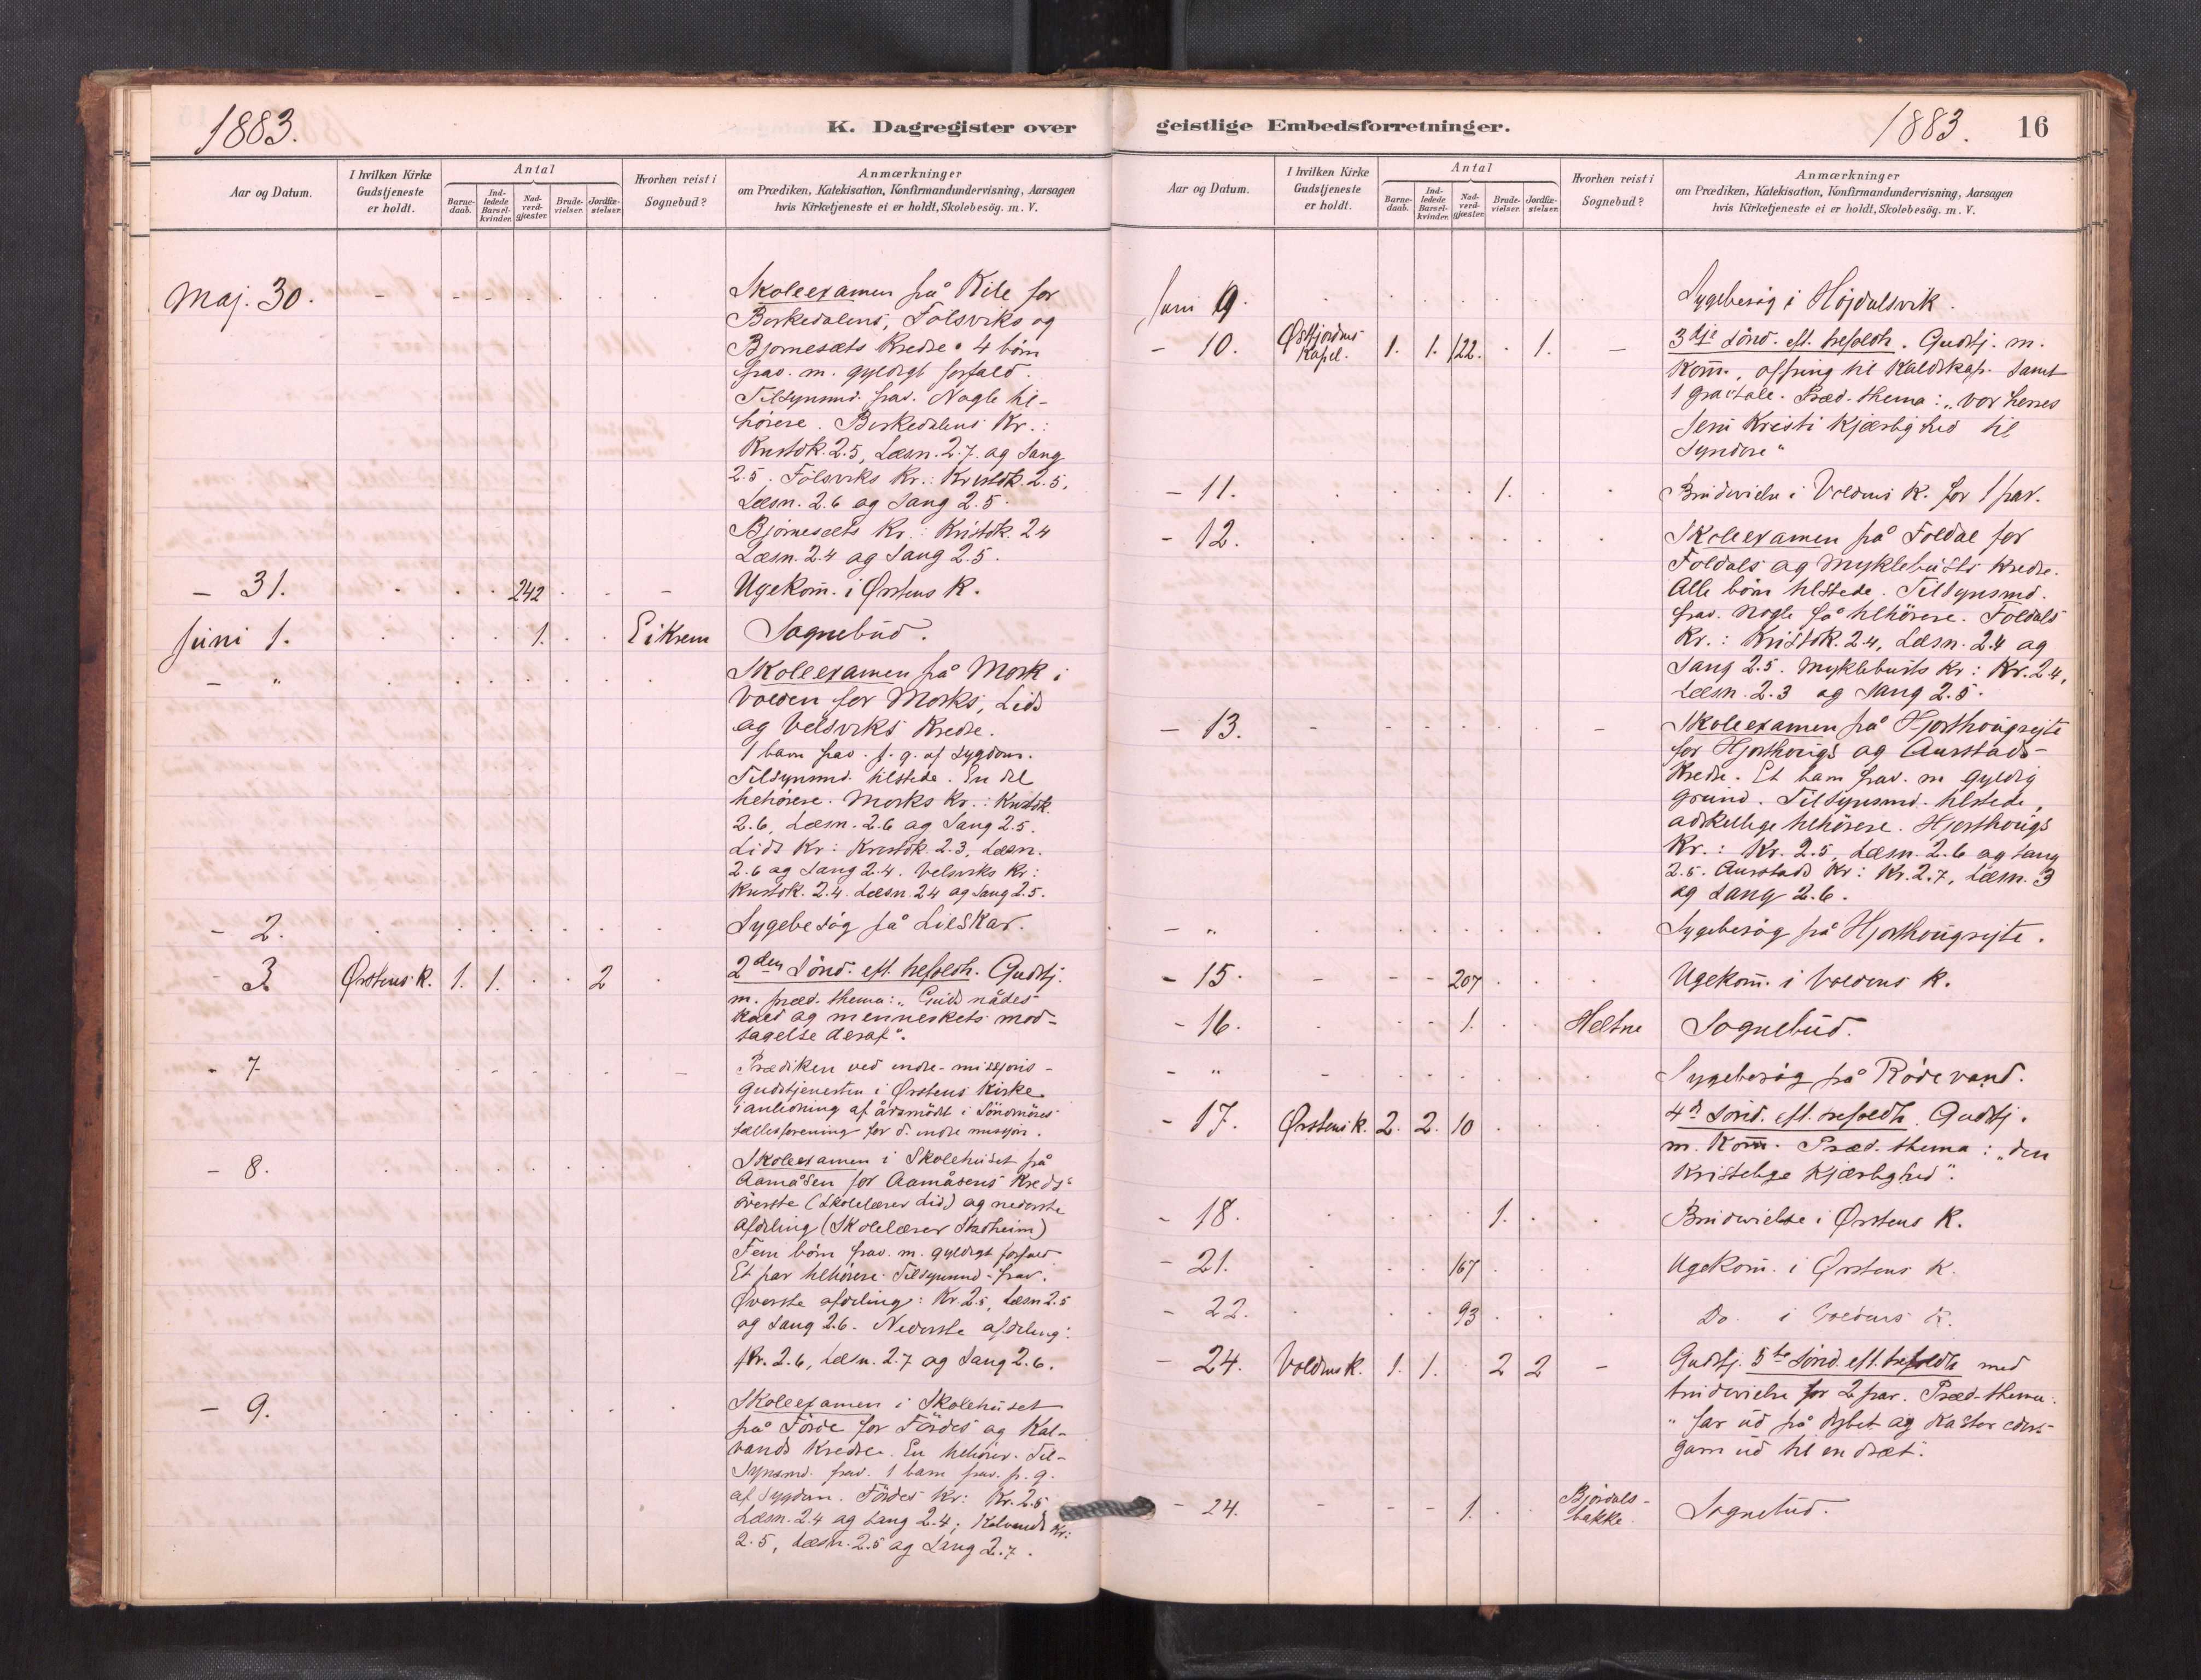 1883.
K. Dagregister over
Aar og Datum.
I hvilken Kirke Gudstjeneste er holdt.
Antal
Barne-daab.
Ind-ledede Barsel-kvinder.
Nad-verd-gjæster.
Brude-vielser.
Jordfæ-stelser.
Hvorhen reist i Sognebud?
Anmærkninger
om Prædiken, Katekisation, Konfirmandundervisning, Aarsagen
hvis Kirketjeneste ei er holdt, Skolebesög. m. V.
Maj. 30.
Skoleexamen på Kile for
Berkedalens, Folsviks og
Bjørnesæts Kredse. 4 børn
frav. m. gyldigt forfald.
Tilsynsmd. frav. Nogle til-
hørere. Birkedalens Kr.:
Kristdk. 2.5, Læsn. 2.7. og Sang
2.5. Fölsviks Kr.: Kristdk. 2.5.
Læsn. 2.6 og Sang 2.5.
Bjørnesæts Kr.: Kristdk. 2.4
Læsn. 2.4 og Sang 2.5.
- 31. 242 - Ugekom̄. i Ørstens K.
Juni 1. 1. Eikrem Sognebud.
- " Skoleexamen på Mork i
Volden for Morks, Lids
og Velsviks Kredse.
1 barn frav. p. g. af Sygdom.
Tilsynsmd. tilstede. En del
tilhørere. Morks Kr.: Kristdk.
2.6, Læsn. 2.6 og Sang 2.5.
Lids Kr: Kristdk. 2.3, Læsn.
2.6 og Sang 2.4. Velsviks Kr:
Kristdk. 2.4. Læsn. 2.4 og Sang 2.5.
- 2. Sygebesøg på Lieskar.
- 3. Ørstens K. 1. 1. 2 2den Sønd. eft. trefoldh. Gudstj.
m. præd. thema: "Guds nådes
kald og menneskets mod-
tagelse deraf".
- 7 Prædiken ved indre-missjons-
gudstjenesten i Ørstens Kirke
i anledning af årsmødet i Söndmöres
fællesforening for d. indre missjon.
- 8. Skoleexamen i Skolehuset på
Aamåsen for Aamåsens Kreds'
øverste (Skolelærer Lid) og nederste
Afdeling (Skolelærer Skodheim)
Fem børn frav. m. gyldigt forfald
Et par tilhørere. Tilsynsmd. frav.
Øverste afdeling: Kr. 2.5, Læsn 2.5
og Sang 2.6. Nederste afdeling:
Kr. 2.6, Læsn. 2.7 og Sang 2.6.
- 9. Skoleexamen i Skolehuset
på Förde for Fördes og Kal-
vands Kredse. En tilhører. Til-
synsmd. frav. 1 barn frav. p. g.
af Sygdom. Fördes Kr: Kr. 2.5
Læsn. 2.4 og Sang 2.4; Kalvands Kr:
2.5, Læsn. 2.5 og Sang 2.7.
geistlige Embedsforretninger.
1883.
16
Aar og Datum.
I hvilken Kirke Gudstjeneste er holdt.
Antal
Barne-daab.
Ind-ledede Barsel-kvinder.
Nad-verd-gjæster.
Brude-vielser.
Jordfæ-stelser.
Hvorhen reist i Sognebud?
Anmærkninger
om Prædiken, Katekisation, Konfirmandundervisning, Aarsagen
hvis Kirketjeneste ei er holdt, Skolebesög. m. V.
Juni 9. Sygebesøg i Höjdalsvik.
- 10. Østfjordens Kapel. 1. 1. 122. 1. - 3dje Sönd. eft. trefoldh. Gudstj. m.
Kom̄., ofring til Kaldskap. samt
1 gravtale. Præd. thema: "vor herres
Jesu Kristi kjærlighed til
syndere"
- 11. 1. Brudevielse i Voldens K. for 1 par.
- 12. Skoleexamen på Foldal for
Foldals og Myklebusts Kredse.
Alle børn tilstede. Tilsynsmd.
frav. Nogle få tilhörere. Foldals
Kr.: Kristdk. 2.4, Læsn. 2.4 og
Sang 2.5. Myklebusts Kr: Kr. 2.4,
Læsn. 2.3 og Sang 2.5.
- 13. - Skoleexamen på Hjorthougsejte
for Hjorthougs og Aurstads-
Kredse. Et barn frav. m gyldig
grund. Tilsynsmd. tilstede,
adskillige tilhörere. Hjorthougs
Kr.: Kr. 2.5, Læsn. 2.6 og Sang
2.5. Aurstads Kr: Kr. 2.7, Læsn. 3
og Sang 2.6.
- " Sygebesøg på Hjorthougsejte.
- 15. 207 Ugekom̄. i Voldens K.
- 16. 1. Heltne Sognebud.
- " Sygebesøg på Rödevand.
- 17. Ørstens K. 2. 2. 10 4d Sönd. eft. trefoldh. Gudstj.
m. Kom̄. Præd. thema: "den
kristelige Kjærlighed".
- 18. 1. Brudevielse i Ørstens K.
- 21. 167 Ugekom̄. i Ørstens K.
- 22. 93 Do. i Voldens K.
- 24. Voldens K. 1. 1. 2 2 - Gudstj. 5te Sönd. eft. trefoldh med
brudevielse for 2 par. Præd. thema:
"far ud på dybet og kaster eders
garn ud til en dræt.
- 24. 1. Björdals-
bakke. Sognebud.